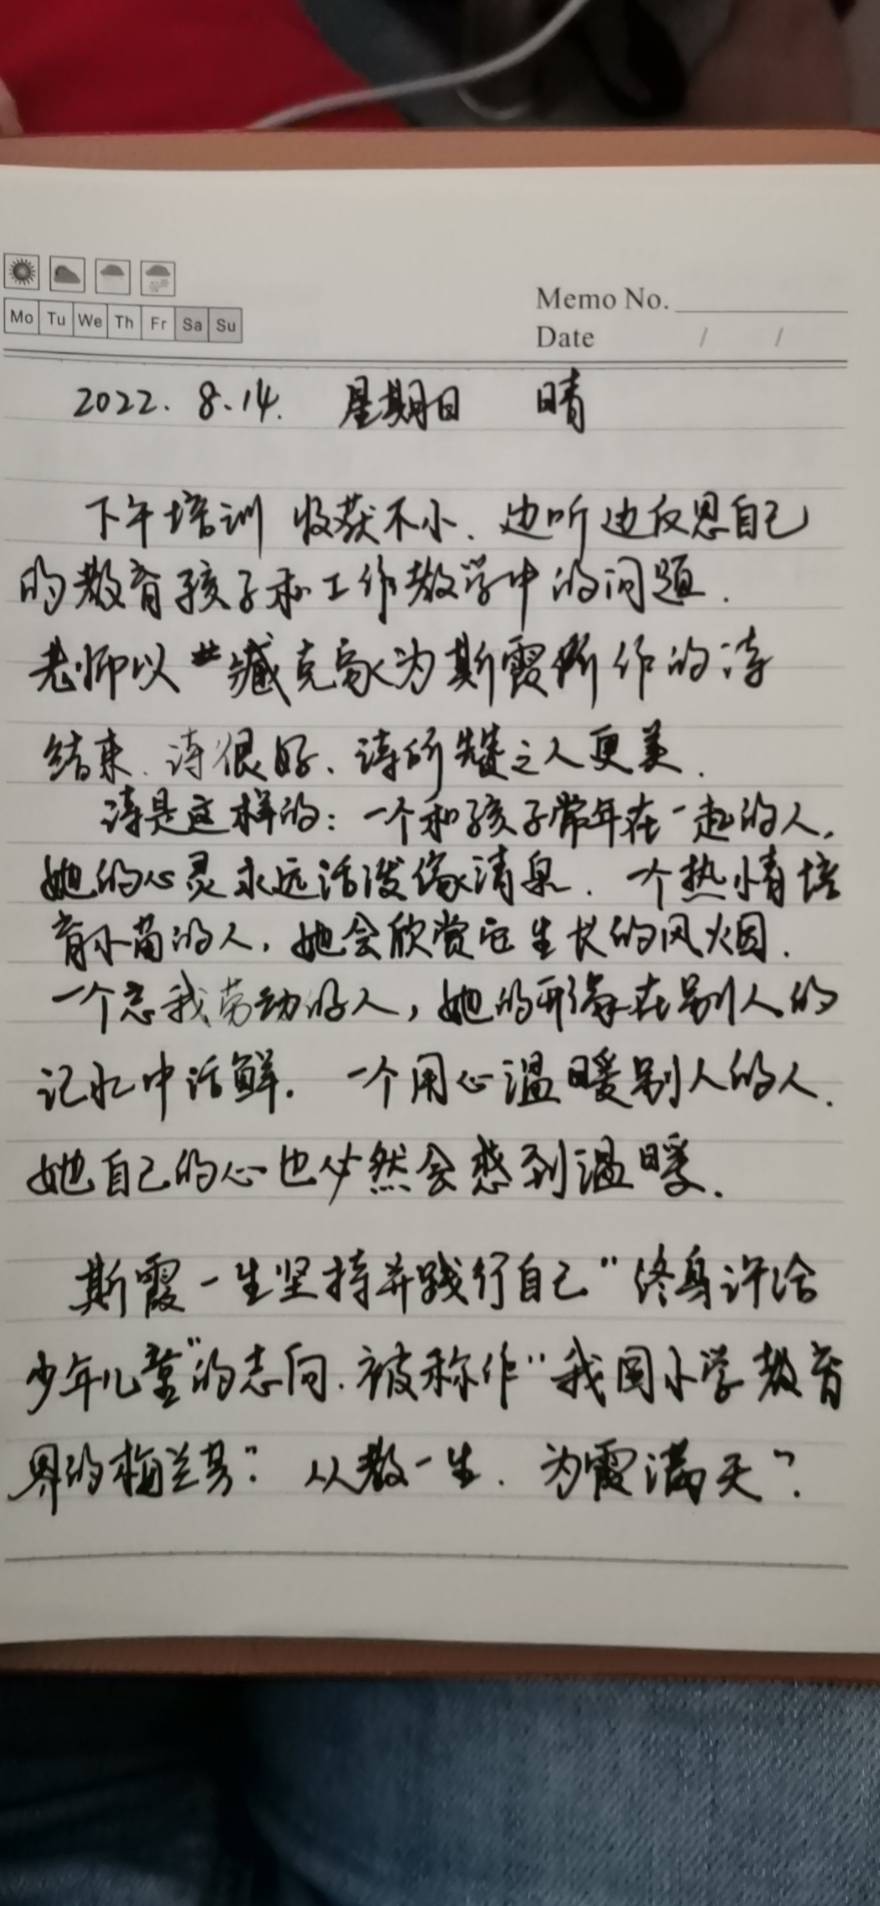 Mo Tu We Th Fr Sa Su
Memo No.
Date / /
2022. 8.14. 星期日 晴
下午培训 收获不小、边听边反思自己
的教育孩子和工作教学中的问题.
老师以臧克家为斯霞所作的诗
结束.诗很好、诗所赞之人更美.
诗是这样的：一个和孩子常年在一起的人,
她的心灵永远活泼像清泉.一个热情培
育小苗的人,她会欣赏它生长的风烟.
一个忘我劳动的人,她的形象在别人的
记忆中活鲜.一个用心温暖别人的人.
她自己的心也必然会感到温暖.
斯霞一生坚持并践行自己“终身许给
少年儿童”的志向.被称作“我国小学教育
界的梅兰芳”.从教一生.为霞满天?